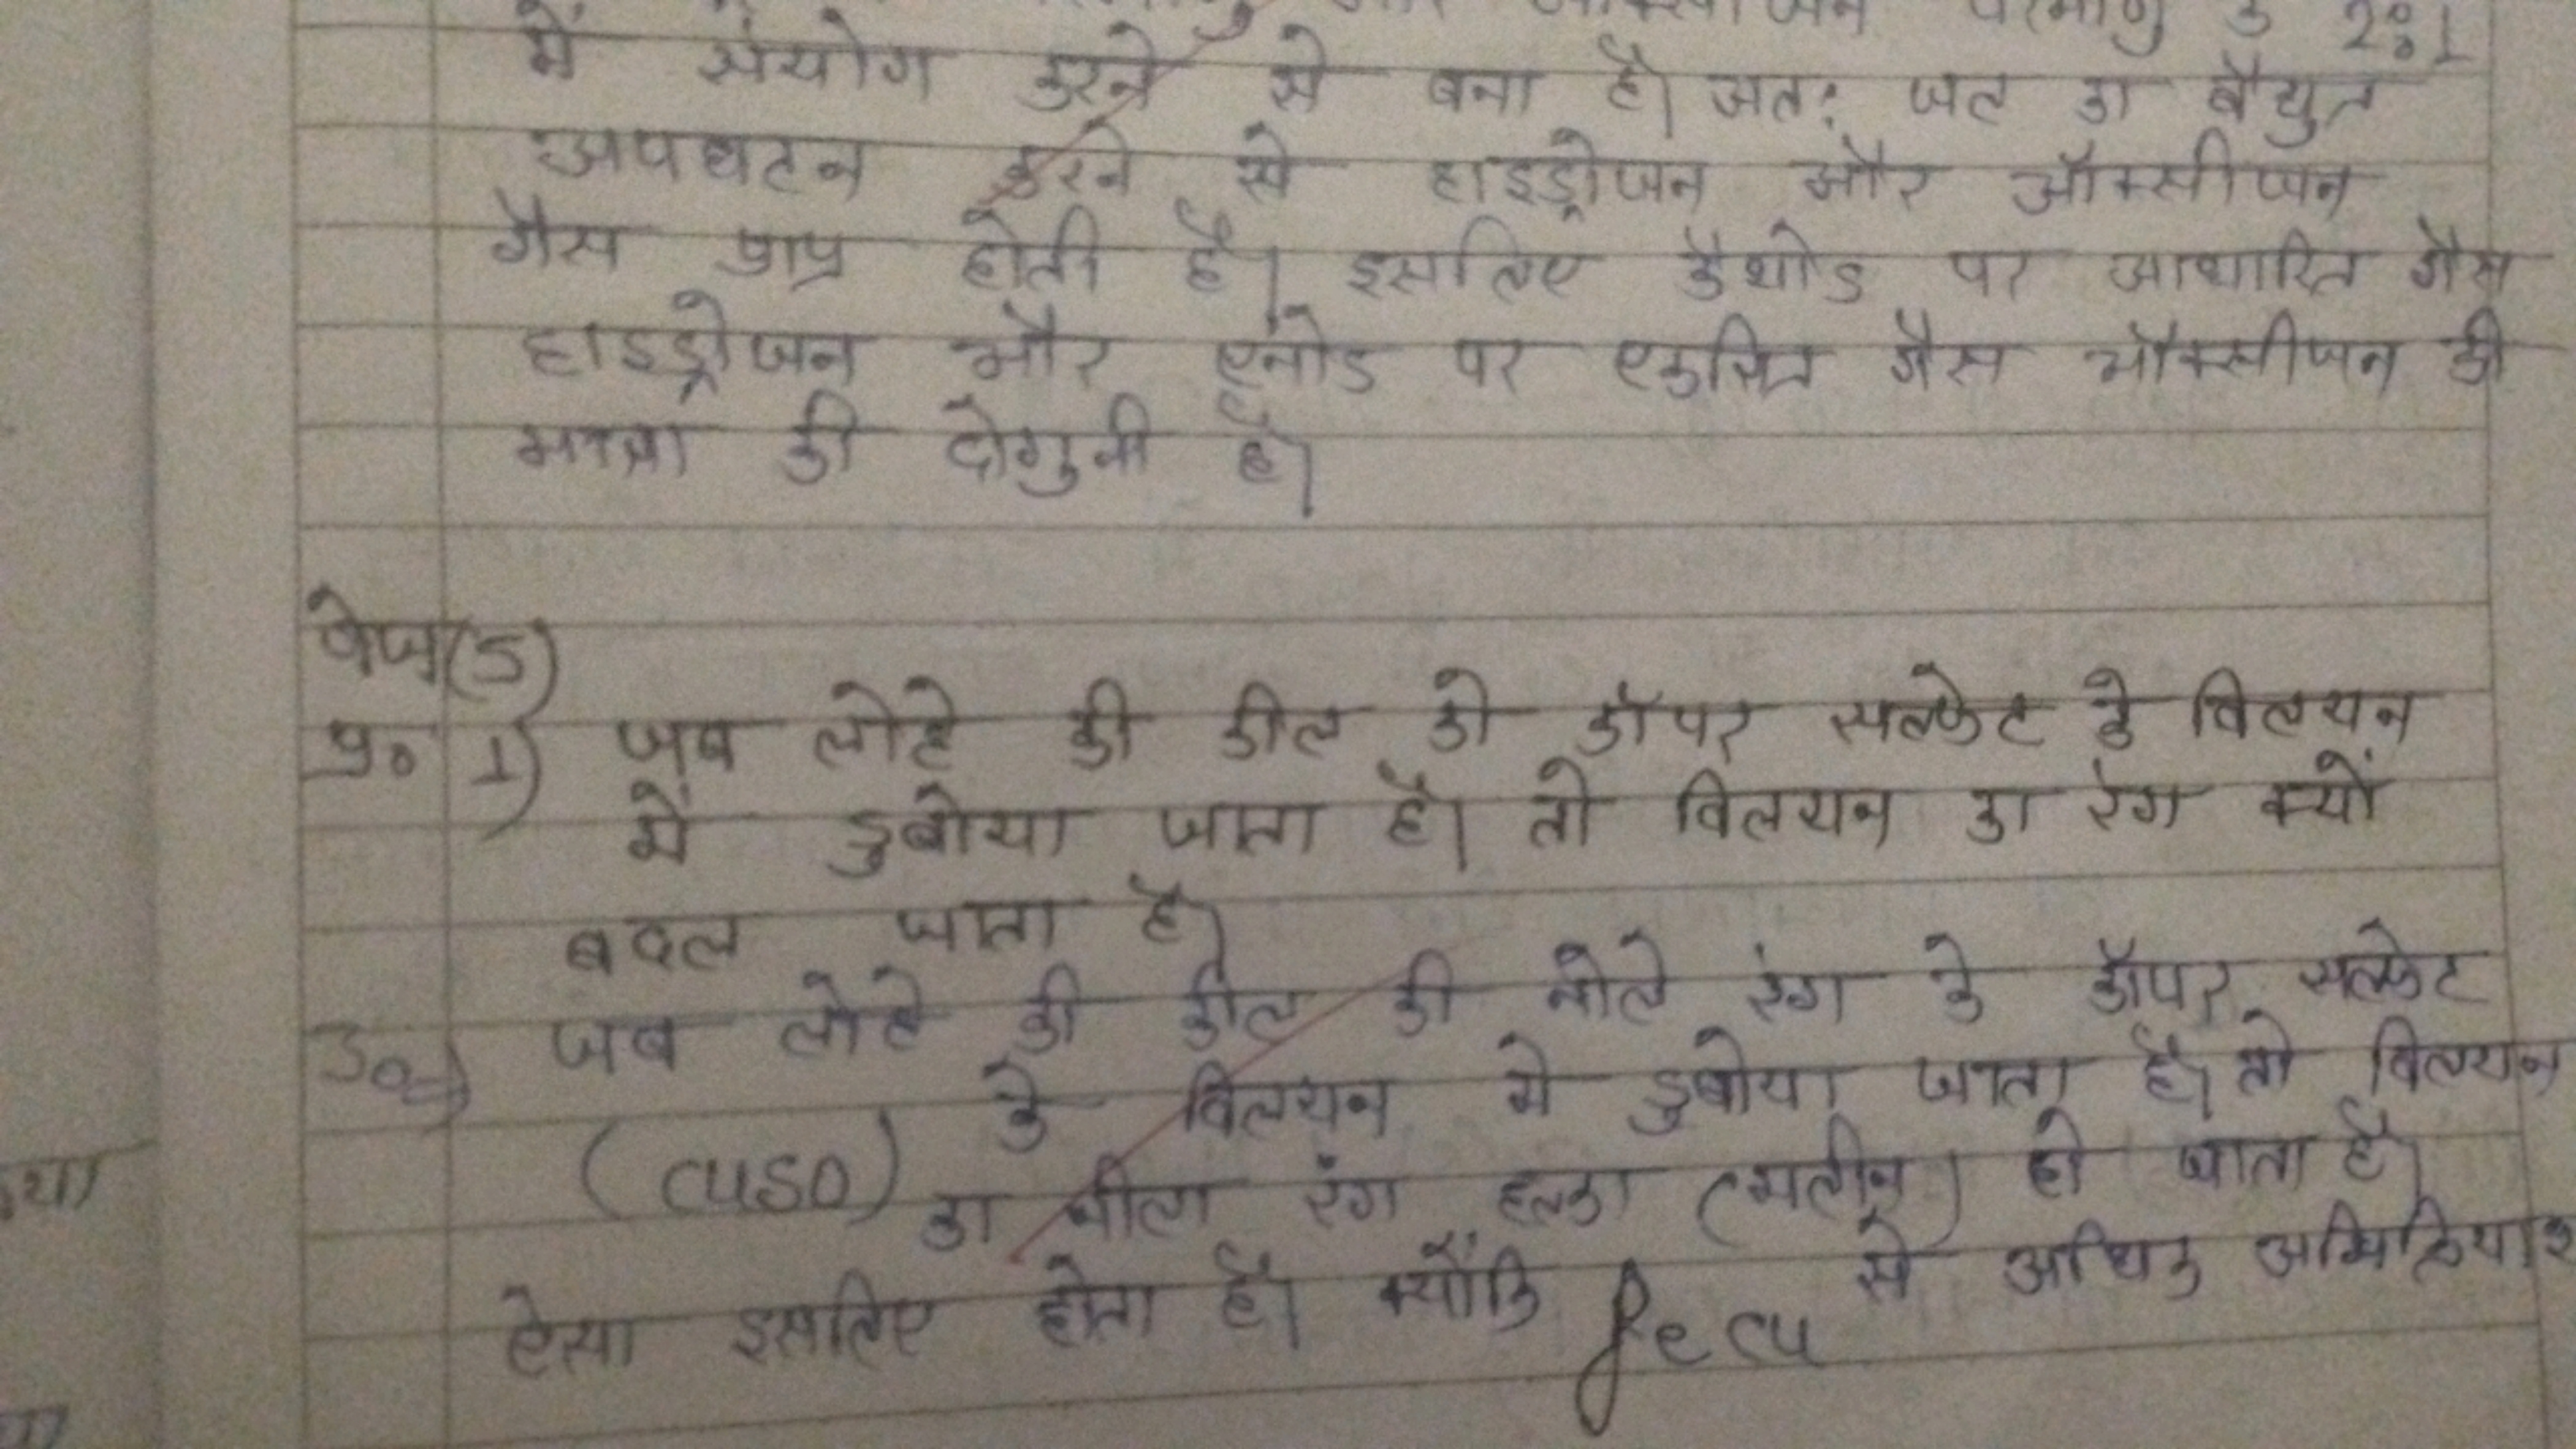 परमाणु के 2:1
में संयोग करने से बना है। अत: जल का वैद्युत
अपघटन करने से हाइड्रोजन और ऑक्सीजन
गैस प्राप्त होती है। इसलिए कैथोड पर आधारित गैस
हाइड्रोजन और एनोड पर एकत्रित गैस ऑक्सीजन की
मात्रा की दोगुनी है।
पेज(5)
प्र० 1) जब लोहे की कील को कॉपर सल्फेट के विलयन
में डुबोया जाता है। तो विलयन का रंग क्यों
बदल जाता है।
उ०→ जब लोहे की कील को नीले रंग के कॉपर सल्फेट
(CuSO) के विलयन में डुबोया जाता है। तो विलयन
का नीला रंग हल्का (मलीन) हो जाता है।
ऐसा इसलिए होता है। क्योंकि Fe Cu से अधिक